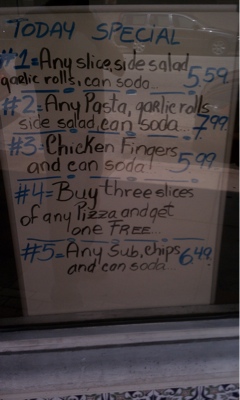 TODAY SPECIAL
#1=Any slice, side salad
garlic rolls, can soda... 5.59
#2=Any Pasta, garlic rolls
side salad, can soda... 7.99
#3=Chicken Fingers
and can soda! 5.99
#4=Buy three slices
of any Pizza and get
one FREE...
#5=Any Sub, chips 6.49
and can soda...